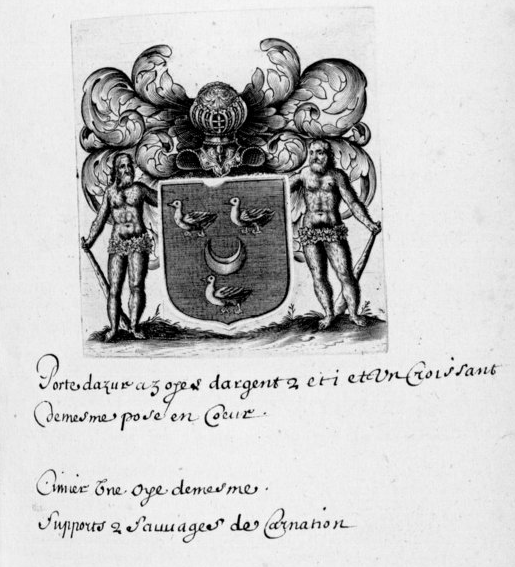 Porte dazur a 3 oyes dargent 2 et i et Vn Croissant
demesme pose en Coeur.
Cimier Vne oye demesme.
Supports 2 Sauuages de Carnation